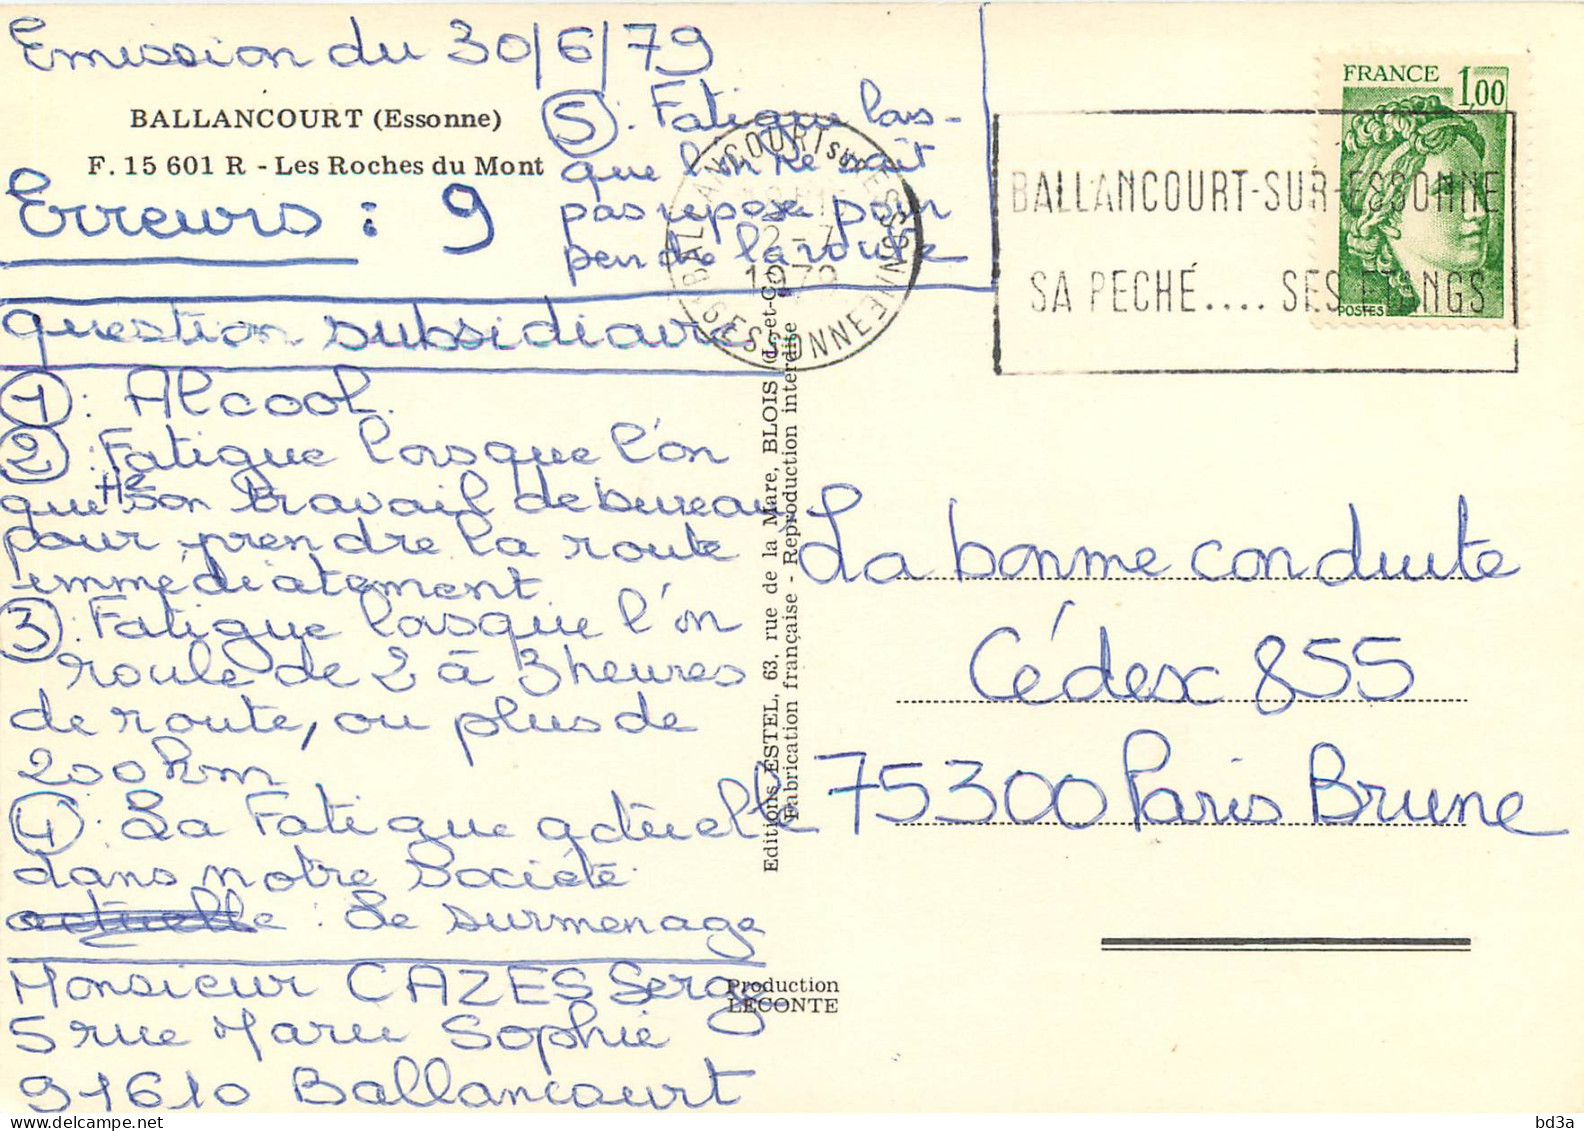 Emission du 30/6/79
BALLANCOURT (Essonne)
F. 15 601 R - Les Roches du Mont
Erreurs : 9
⑤ : Fatigue lors-
que l'on ne sait
pas repose pour
pendre la route
question subsidiaire
① : Alcool.
② : Fatigue lorsque l'on
quitte son travail de bureau
pour prendre la route
immédiatement
③ : Fatigue lorsque l'on
roule de 2 à 3 heures
de route, ou plus de
200 km
④ : La Fatigue actuelle
dans notre Société
actuelle : Le surmenage
Monsieur CAZES Serge
5 rue Marie Sophie
91610 Ballancourt
Editions ESTEL, 63, rue de la Mare, BLOIS (L.-et-C.)
Fabrication française - Reproduction interdite
Production
LECONTE
BALLANCOURT SUR ESSONNE
2-7
1979
91 ESSONNE
BALLANCOURT-SUR-ESSONNE
SA PECHÉ.... SES ETANGS
FRANCE 1,00
POSTES
La bonne conduite
Cédex 855
75300 Paris Brune
bd3a